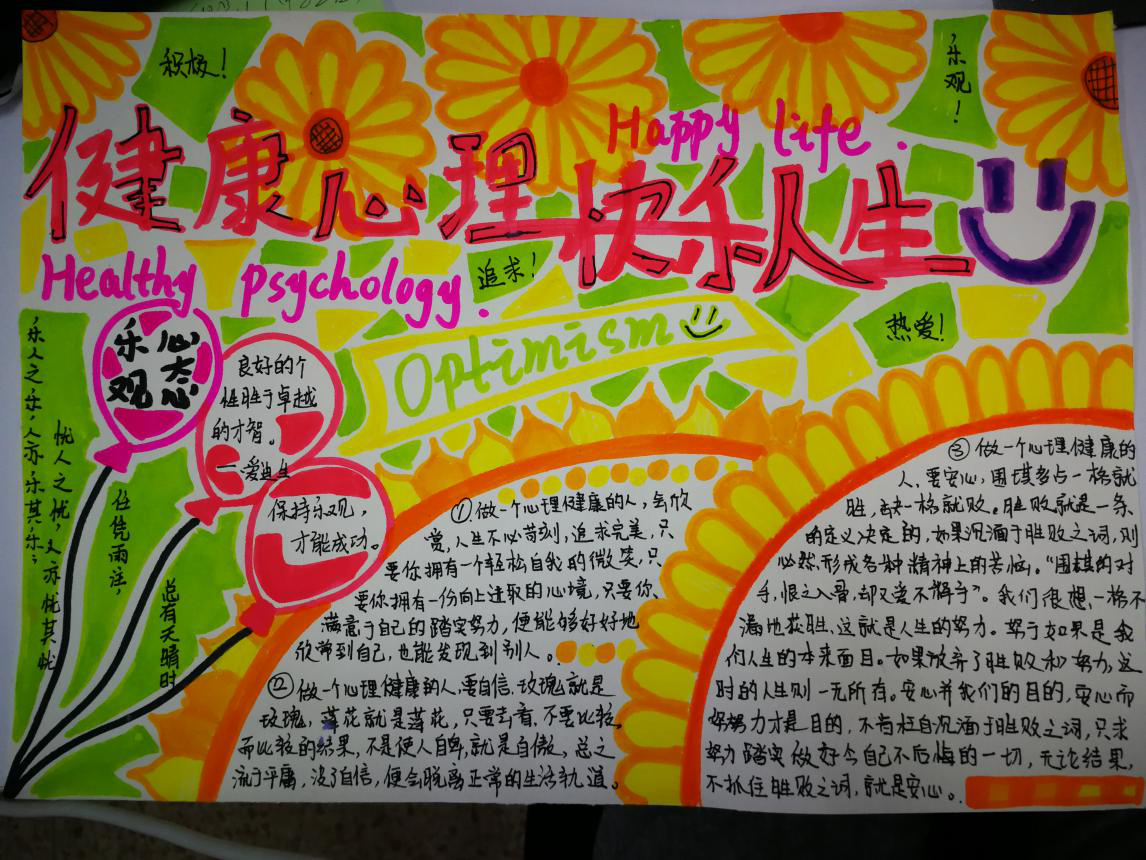 积极！
乐观！
健康心理 快乐人生
Happy life.
Healthy psychology.
追求！
热爱！
Optimism
乐观
心态
良好的个
性胜于卓越
的才智。
保持乐观，
才能成功。
乐人之乐，人亦乐其乐；
忧人之忧，人亦忧其忧
任凭雨注，
总有天晴时
①做一个心理健康的人，会欣
赏，人生不必苛刻，追求完美，只
要你拥有一个轻松自我的微笑，只
要你拥有一份向上进取的心境，只要你、
满意于自己的踏实努力，便能够好好地
欣常到自己，也能发现到别人。
②做一个心理健康的人，要自信，玫瑰就是
玫瑰，莲花就是莲花，只要去看，不要比较。
而比较的结果，不是使人自卑，就是自傲，总之
流于平庸，没了自信，便会脱离正常的生活轨道。
③做一个心理健康的
人，要安心，围棋多占一格就
胜，去一格就败。胜败就是一条
的定义决定的，如果沉湎于胜败之词，则
必然形成各种精神上的苦恼。“围棋的对
手，恨之入骨，却又爱不解手”。我们很想一格不
漏地获胜，这就是人生的努力。努力如果是我
们人生的本来面目。如果放弃了胜败和努力，这
时的人生则一无所有。安心并我们的目的，安心而
努力才是目的，不肯枉自沉湎于胜败之词，只求
努力踏实做好令自己不后悔的一切，无论结果，
不抓住胜败之词，就是安心。